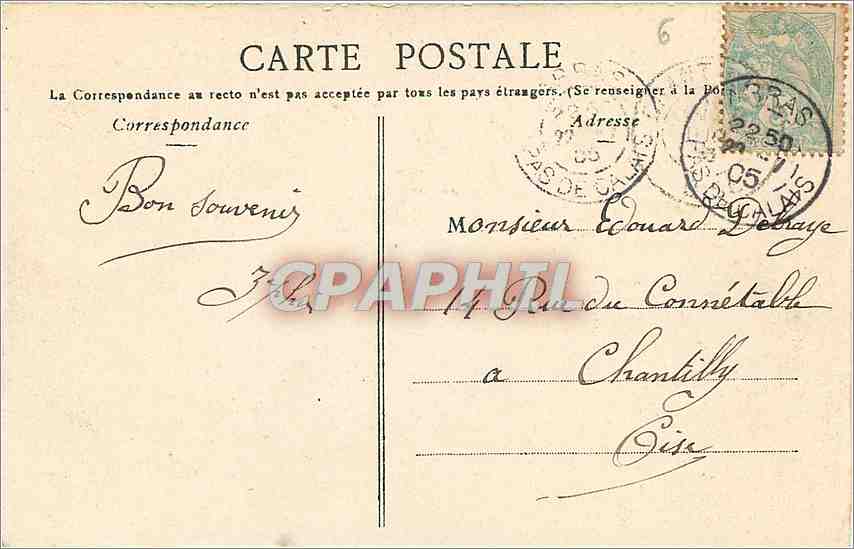 6
CARTE POSTALE
La Correspondance au recto n'est pas acceptée par tous les pays étrangers. (Se renseigner à la
Correspondance
Adresse
PAS DE CALAIS
05
ARRAS
22 50
05
PAS DE CALAIS
Bon souvenir
Monsieur Edouard Debraye
14 Rue du Connétable
a Chantilly
Oise
CPAPHIL